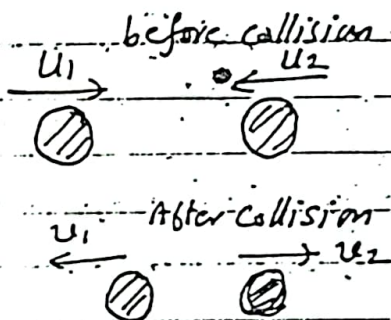 before collision
U1 U2
After collision
v1 v2